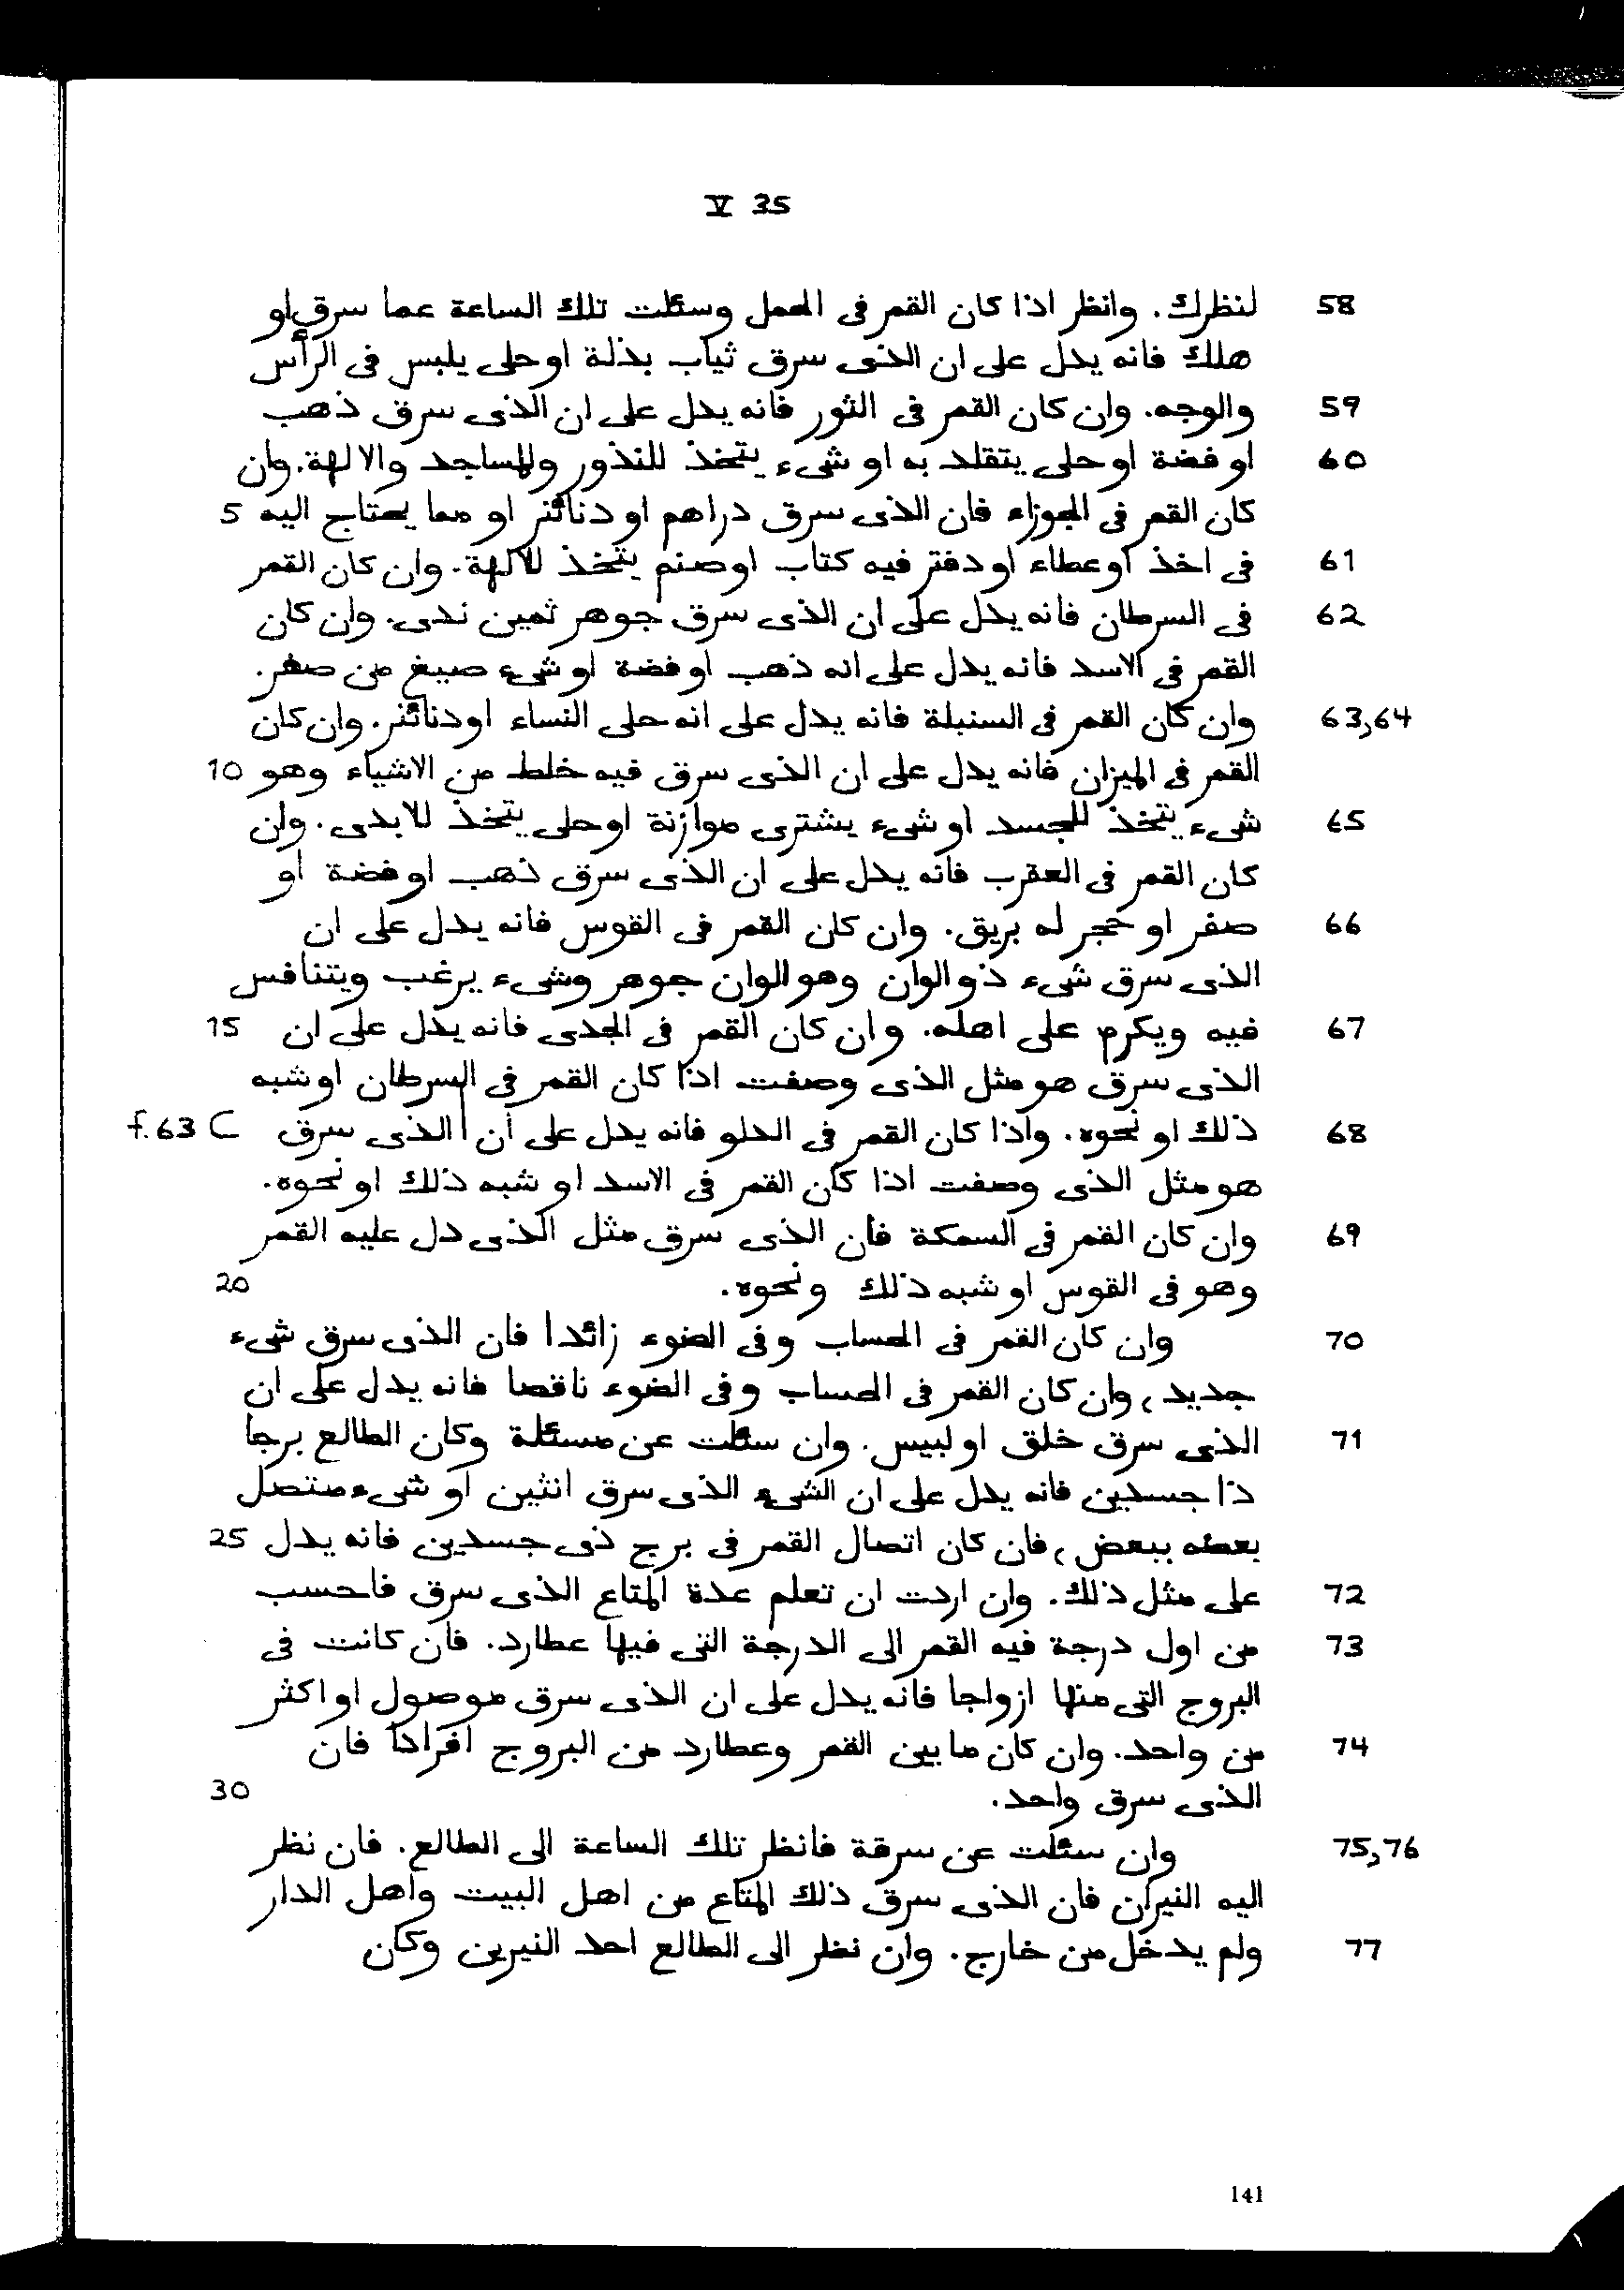 V 35
58 لنظرك. وانظر اذا كان القمر فى الحمل وسئلت تلك الساعة عما سرق او
هلك فانه يدل على ان الذى سرق ثياب بذلة او حلى يلبس فى الرأس
59 والوجه. وان كان القمر فى الثور فانه يدل على ان الذى سرق ذهب
60 او فضة او حلى يتقلد به او شىء يتخذ للنذور وللمساجد والالهة. وان
كان القمر فى الجوزاء فان الذى سرق دراهم او دنانئر او مما يحتاج اليه 5
61 فى اخذ او عطاء او دفتر فيه كتاب او صنم يتخذ للآلهة. وان كان القمر
62 فى السرطان فانه يدل على ان الذى سرق جوهر ثمين ندى. وان كان
القمر فى الاسد فانه يدل على انه ذهب او فضة او شىء صيغ من صفر.
63,64 وان كان القمر فى السنبلة فانه يدل على انه حلى النساء او دنانئر. وان كان
القمر فى الميزان فانه يدل على ان الذى سرق فيه خلط من الاشياء وهو 10
65 شىء يتخذ للجسد او شىء يشترى موازنة او حلى يتخذ للابدى. وان
كان القمر فى العقرب فانه يدل على ان الذى سرق ذهب او فضة او
66 صفر او حجر له بريق. وان كان القمر فى القوس فانه يدل على ان
الذى سرق شىء ذو الوان وهو الوان جوهر وشىء يرغب ويتنافس
67 فيه ويكرم على اهله. وان كان القمر فى الجدى فانه يدل على ان 15
الذى سرق هو مثل الذى وصفت اذا كان القمر فى السرطان او شبه
68 ذلك او نحوه. واذا كان القمر فى الدلو فانه يدل على ان | الذى سرق f. 63 C
هو مثل الذى وصفت اذا كان القمر فى الاسد او شبه ذلك او نحوه.
69 وان كان القمر فى السمكة فان الذى سرق مثل الذى دل عليه القمر
وهو فى القوس او شبه ذلك ونحوه. 20
70 وان كان القمر فى الحساب وفى الضوء زائدا فان الذى سرق شىء
جديد، وان كان القمر فى الحساب وفى الضوء ناقصا فانه يدل على ان
71 الذى سرق خلق او لبيس. وان سئلت عن مسئلة وكان الطالع برجا
ذا جسدين فانه يدل على ان الشىء الذى سرق اثنين او شىء متصل
بعضه ببعض، فان كان اتصال القمر فى برج ذى جسدين فانه يدل 25
72 على مثل ذلك. وان اردت ان تعلم عدة المتاع الذى سرق فاحسب
73 من اول درجة فيه القمر الى الدرجة التى فيها عطارد. فان كانت فى
البروج التى منها ازواجا فانه يدل على ان الذى سرق موصول او اكثر
74 من واحد. وان كان ما بين القمر وعطارد من البروج افرادا فان
الذى سرق واحد. 30
75,76 وان سئلت عن سرقة فانظر تلك الساعة الى الطالع. فان نظر
اليه النيران فان الذى سرق ذلك المتاع من اهل البيت واهل الدار
77 ولم يدخل من خارج. وان نظر الى الطالع احد النيرين وكان
141